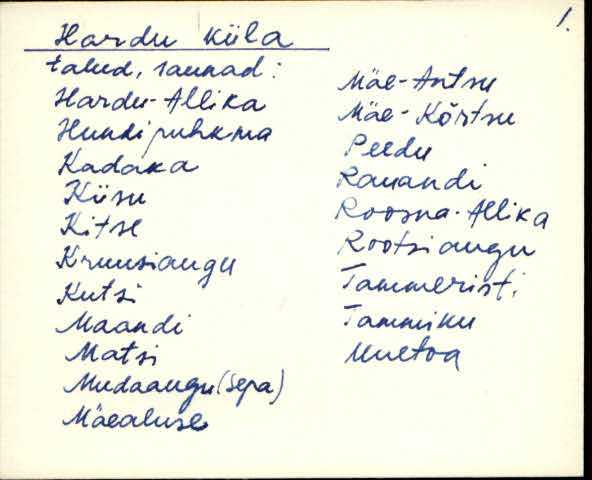 1.
Hardu küla
talud, saunad:
Hardu-Allika
Hundipuhkma
Kadaka
Kiisu
Kitse
Kruusiaugu
Kutsi
Maandi
Matsi
Mudaaugu (Sepa)
Mäealuse
Mäe-Antsu
Mäe-Kõrtsu
Peedu
Rauandi
Roosna-Allika
Rootsiaugu
Tammeristi
Tammiku
Uuetoa